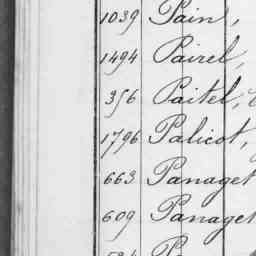 1039 Pain,
1494 Pairel,
356 Paitel,
1796 Palicot,
663 Panaget
609 Panaget